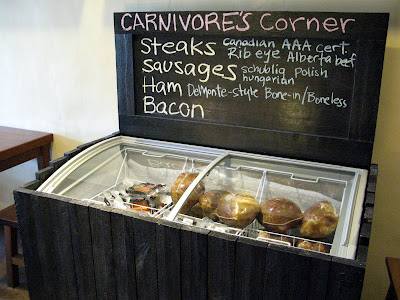 CARNIVORE'S Corner
Steaks Canadian AAA cert.
Rib eye Alberta beef
Sausages schublig Polish
hungarian
Ham DelMonte-style Bone-in/Boneless
Bacon